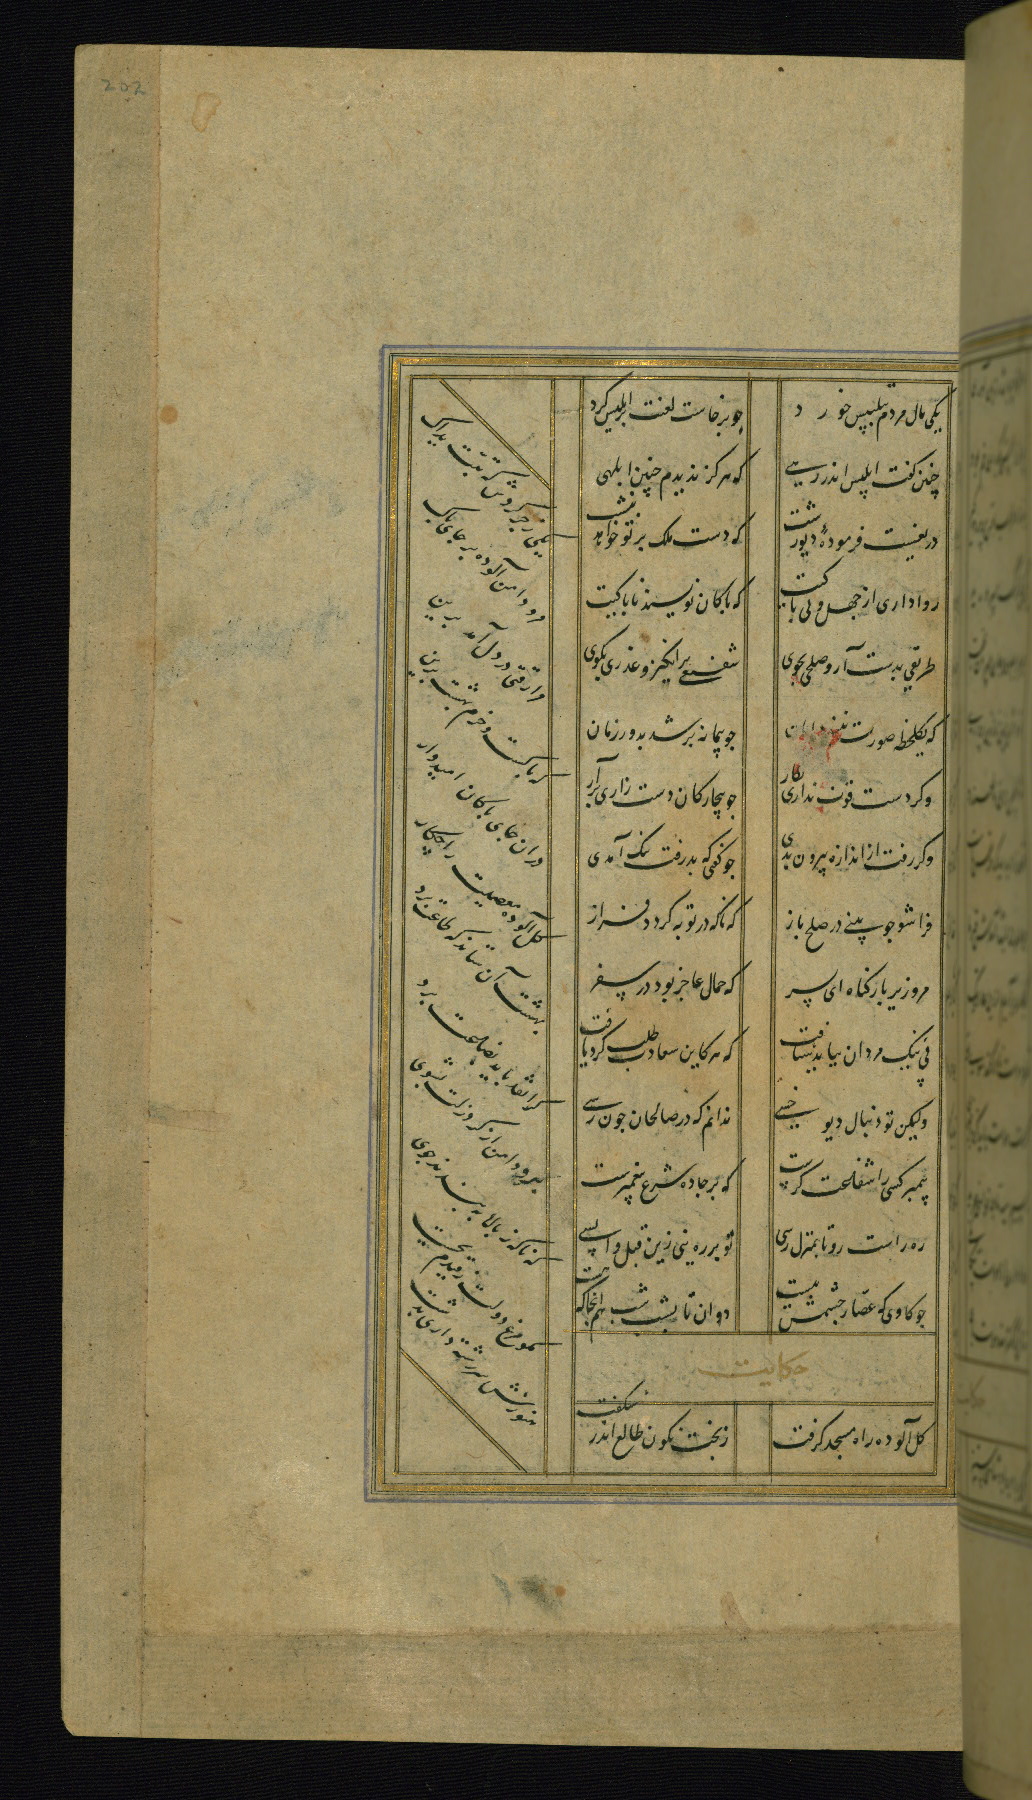 یکی مال مردم بتلبیس خورد
چو برخاست لعنت بر ابلیس کرد
چنین گفت ابلیس اندر رهی
که هرکز ندیدم چنین ابلهی
دریغست فرمودهٔ دیو زشت
که دست ملک بر تو خواهد نبشت
روا داری از جهل و بی باکیت
که پاکان نویسند ناپاکیت
طریقی بدست آر و صلحی بجوی
شفیعی برانکیز و عذری بکوی
که یکلحظه صورت نبندد امان
چو پیمانه پر شد بدور زمان
وکر دست قوت نداری بکار
چو بیچارکان دست زاری برآر
وکر رفت از اندازه بیرون بدی
چو کفتی که بد رفت نیک آمدی
فرا شو چو بینی در صلح باز
که ناکه در توبه کردد فراز
مرو زیر بار کناه ای پسر
که حمال عاجز بود در سفر
پی نیک مردان بباید شتافت
که هر کاین سعادت طلب کرد یافت
ولیکن تو دنبال دیو خسی
ندانم که در صالحان چون رسی
پیمبر کسی را شفاعت کرست
که بر جاده شرع پیغمبرست
ره راست رو تا بمنزل رسی
تو بر ره نئی زین قبل واپسی
چو کاوی که عصار چشمش ببست
دوان تا بشب شب همانجا که هست
حکایت
کل آلوده راه مسجد کرفت
ز بخت نکون طالع اندر شکفت
یکی زجر کردش که تبت یداک
مرو دامن آلوده بر جای پاک
مرا رقتی در دل آمد برین
که پاکست و خرم بهشت برین
در ان جای پاکان امیدوار
کل آلوده معصیت را چکار
بهشت آن ستاند که طاعت برد
کرا نقد باید بضاعت برد
برو دامن از کرد زلت بشوی
که ناکه ز بالا ببندند جوی
مکو مرغ دولت ز قیدم بجست
هنوزش سر رشته داری بدست
202